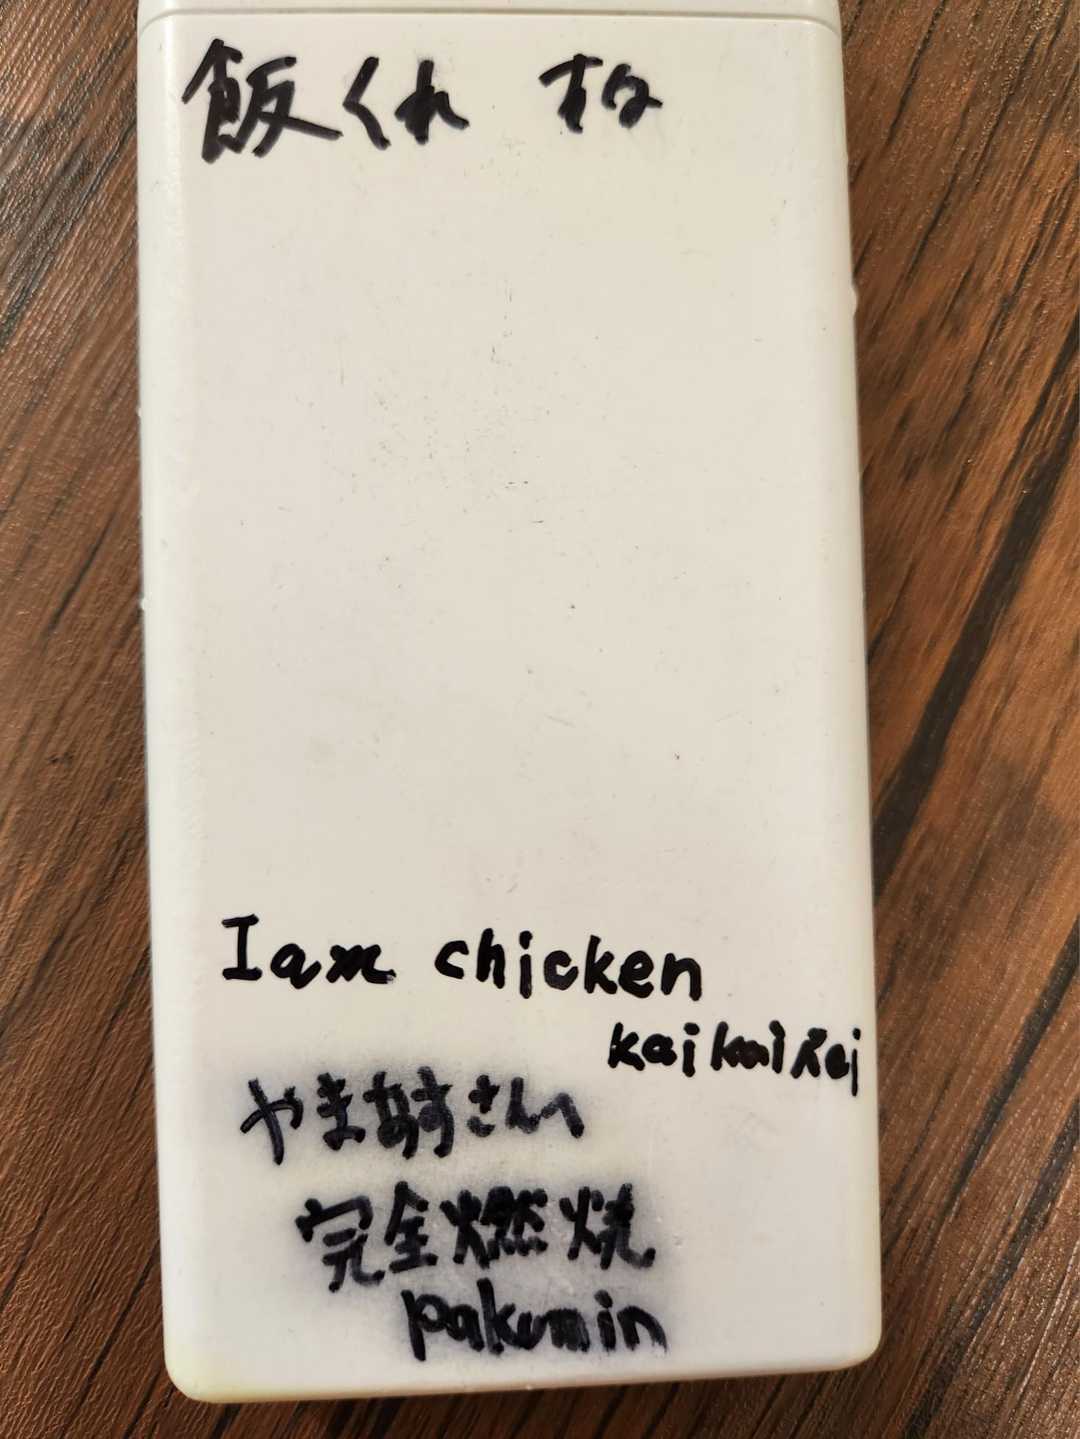 飯くれ
I am chicken
kaikai
やまあすさんへ
完全燃焼
pakumin